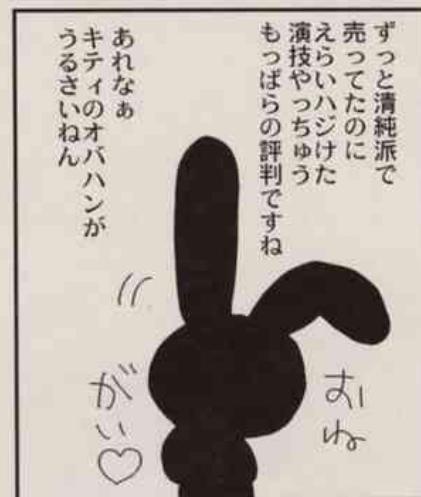 ずっと清純派で
売ってたのに
えらいハジけた
演技やっちゅう
もっぱらの評判ですね
あれなぁ
キティのオバハンが
うるさいねん
おね
がい♡